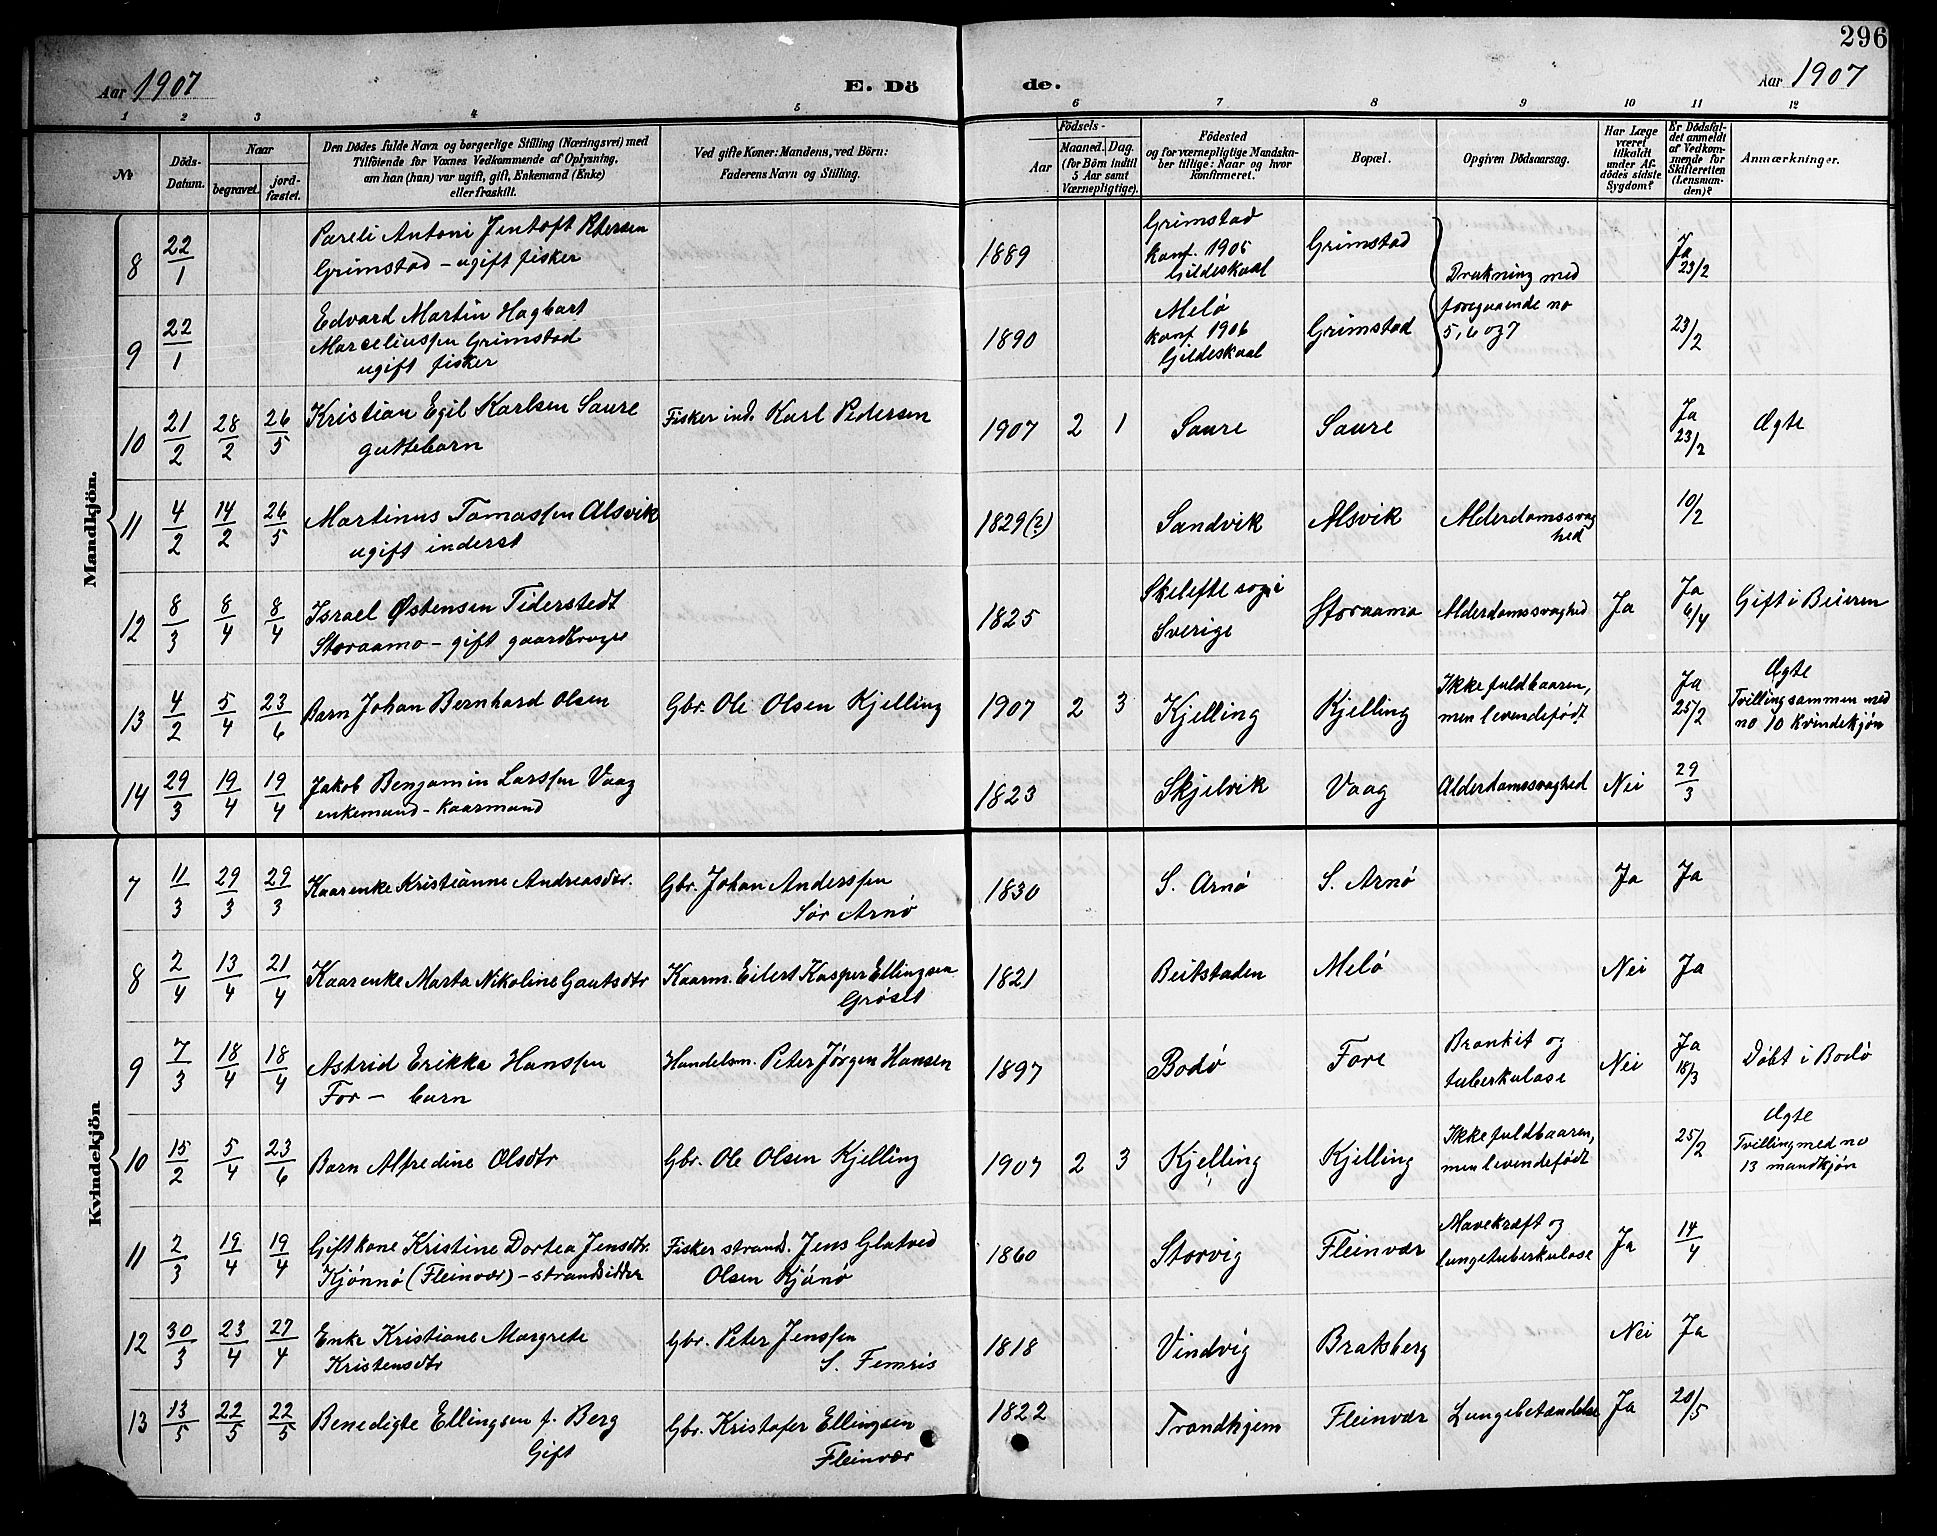 296
Aar 1907 E. Dö de. Aar 1907
1 2 3 4 5 6 7 8 9 10 11 12
№ Döds-Datum. Naar begravet. jordfæstet. Den Dödes fulde Navn og borgerlige Stilling (Næringsvei) med Tilföiende for Voxnes Vedkommende af Oplysning, om han (hun) var ugift, gift, Enkemand (Enke) eller fraskilt. Ved gifte Koner: Mandens, ved Börn: Faderens Navn og Stilling. Födsels- Aar Maaned. Dag. (for Börn indtil 5 Aar samt Værnepligtige). Födested og for værnepligtige Mandskaber tillige: Naar og hvor konfirmeret. Bopæl. Opgiven Dödsaarsag. Har Læge været tilkaldt under Afdödes sidste Sygdom? Er Dödsfaldet anmeldt af Vedkommende for Skifteretten (Lensmanden)? Anmærkninger.
Mandkjön.
8 22/1 Pareli Antoni Jentoft Petersen 1889 Grimstad Grimstad Ja
Grimstad - ugift fisker konf. 1905 Drukning med 23/2
Gildeskaal
9 22/1 Edvard Martin Hagbart 1890 Melø Grimstad foregaaende no 23/2
Marceliussen Grimstad konf. 1906 5, 6 og 7
ugift fisker Gildeskaal
10 21/2 28/2 26/5 Kristian Egil Karlsen Saure Fisker ind. Karl Pedersen 1907 2 1 Saure Saure Ja Ægte
guttebarn 23/2
11 4/2 14/2 26/5 Martinus Tomassen Alsvik 1829 (?) Sandvik Alsvik Alderdomssvag 10/2
ugift inderst hed
12 8/3 8/4 8/4 Israel Østensen Tiderstedt 1825 Skelefte sogn i Storaamo Alderdomssvaghed Ja Ja Gift i Beieren
Storaamo - gift gaardbruger Sverige 6/4
13 4/2 5/4 23/6 Barn Johan Bernhard Olsen Gbr. Ole Olsen Kjelling 1907 2 3 Kjelling Kjelling Ikke fuldbaaren, Ja Ægte
men levendefødt 25/2 Tvilling sammen med
no 10 Kvindekjøn
14 29/3 19/4 19/4 Jakob Benjamin Larssen Vaag 1823 Skjelvik Vaag Alderdomssvaghed Nei 29/3
enkemand - kaarmand
Kvindekjön
7 11/3 29/3 29/3 Kaarenke Kristianne Andreasdtr. Gbr. Johan Anderssen 1830 S. Arnø S. Arnø Ja Ja
Sør Arnø
8 2/4 13/4 21/4 Kaarenke Marta Nikoline Gautsdtr Kaarm. Eilert Kasper Ellingsen 1821 Beitstaden Melø Nei Ja
Grøset
9 7/3 18/4 18/4 Astrid Erikka Hanssen Handelsm. Peter Jørgen Hansen 1897 Bodø Fore Bronkit og Nei Ja Døbt i Bodø
For - barn tuberkulose 18/3
10 15/2 5/4 23/6 Barn Alfredine Olsdtr Gbr. Ole Olsen Kjelling 1907 2 3 Kjelling Kjelling Ikke fuldbaaren, 25/2 Ægte
men levendefødt Tvilling med no
13 mandkjøn
11 2/3 19/4 19/4 Gift kone Kristine Dortea Jensdtr. Fisker strands. Jens Glatved 1860 Storvig Fleinvær Mavekræft og Ja 14/4
Kjønnø (Fleinvær) - strandsidder Olsen Kjønø lungetuberkulose
12 30/3 23/4 27/4 Enke Kristiane Margrete Gbr. Peter Jenssen 1818 Vindvig Bratsberg Nei Ja
Kristensdtr S. Femris
13 13/5 22/5 22/5 Benedigte Ellingsen f. Berg Gbr. Kristofer Ellingsen 1822 Trondhjem Fleinvær Lungebetændelse Ja 20/5
Gift Fleinvær